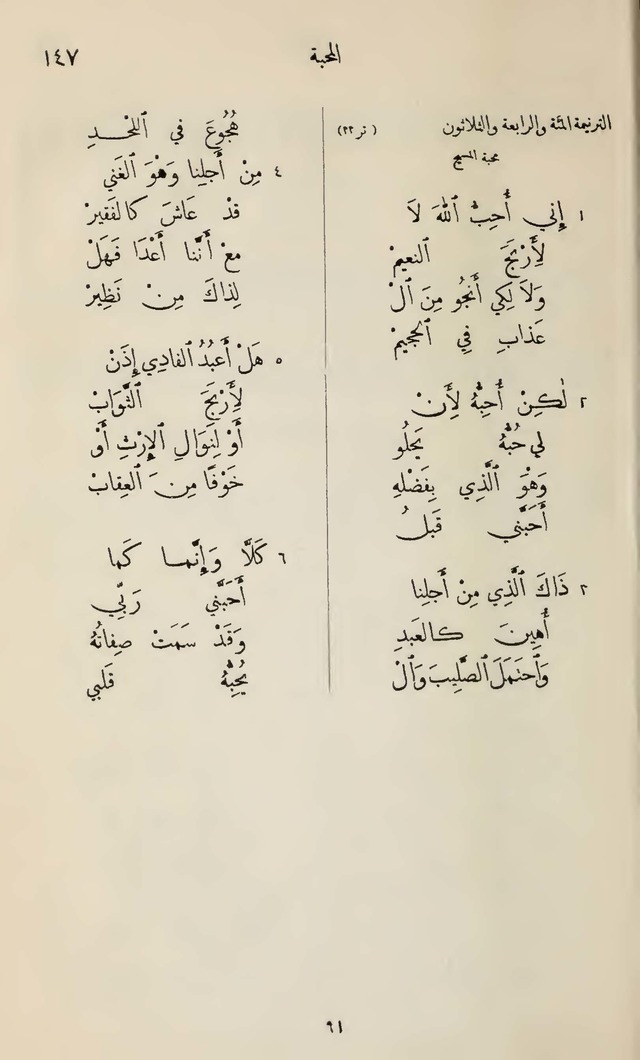 المحبة ١٤٧
الترنيمة المئة والرابعة والثلاثون (تر ٢٢)
محبة المسيح
١ إِنِي أُحِبُّ ٱللّٰهَ لَا
لِأَرْبَحَ ٱلنعيمْ
وَلَا لِكِي أَنجُو مِنَ ٱلْ
عَذابِ فِي ٱلجحِيمْ
٢ لٰكِنْ أُحِبُّهُ لِأَنْ
لِي حُبُّهُ يَحلُو
وَهْوَ ٱلَّذِي بِفَضْلهِ
أَحَبَّني قَبلُ
٢ ذَاكَ ٱلَّذِي مِنْ أَجلِنا
أُهِينَ كالعَبدِ
وَٱحتَمَلَ ٱلصَّلِيبَ وَٱلْ
هُجُوعَ في ٱللحْدِ
٤ مِنْ أَجلِنا وَهْوَ ٱلغَني
قدْ عَاشَ كالفَقيرْ
معْ أَنَّنا أَعْدَا فَهَلْ
لِذاكَ مِنْ نَظِيرْ
٥ هَلْ أَعبُدُ ٱلفادِي إِذَنْ
لِأَرْبَحَ ٱلثَّوَابْ
أَوْ لِنَوَالِ ٱلإِرْثِ أَوْ
خَوْفًا مِنَ ٱلعِقابْ
٦ كَلَّا وَإِنَّما كَما
أَحَبَّني رَبِّي
وَقَدْ سَمَتْ صِفاتُهُ
يُحِبُّهُ قَلبي
٦١